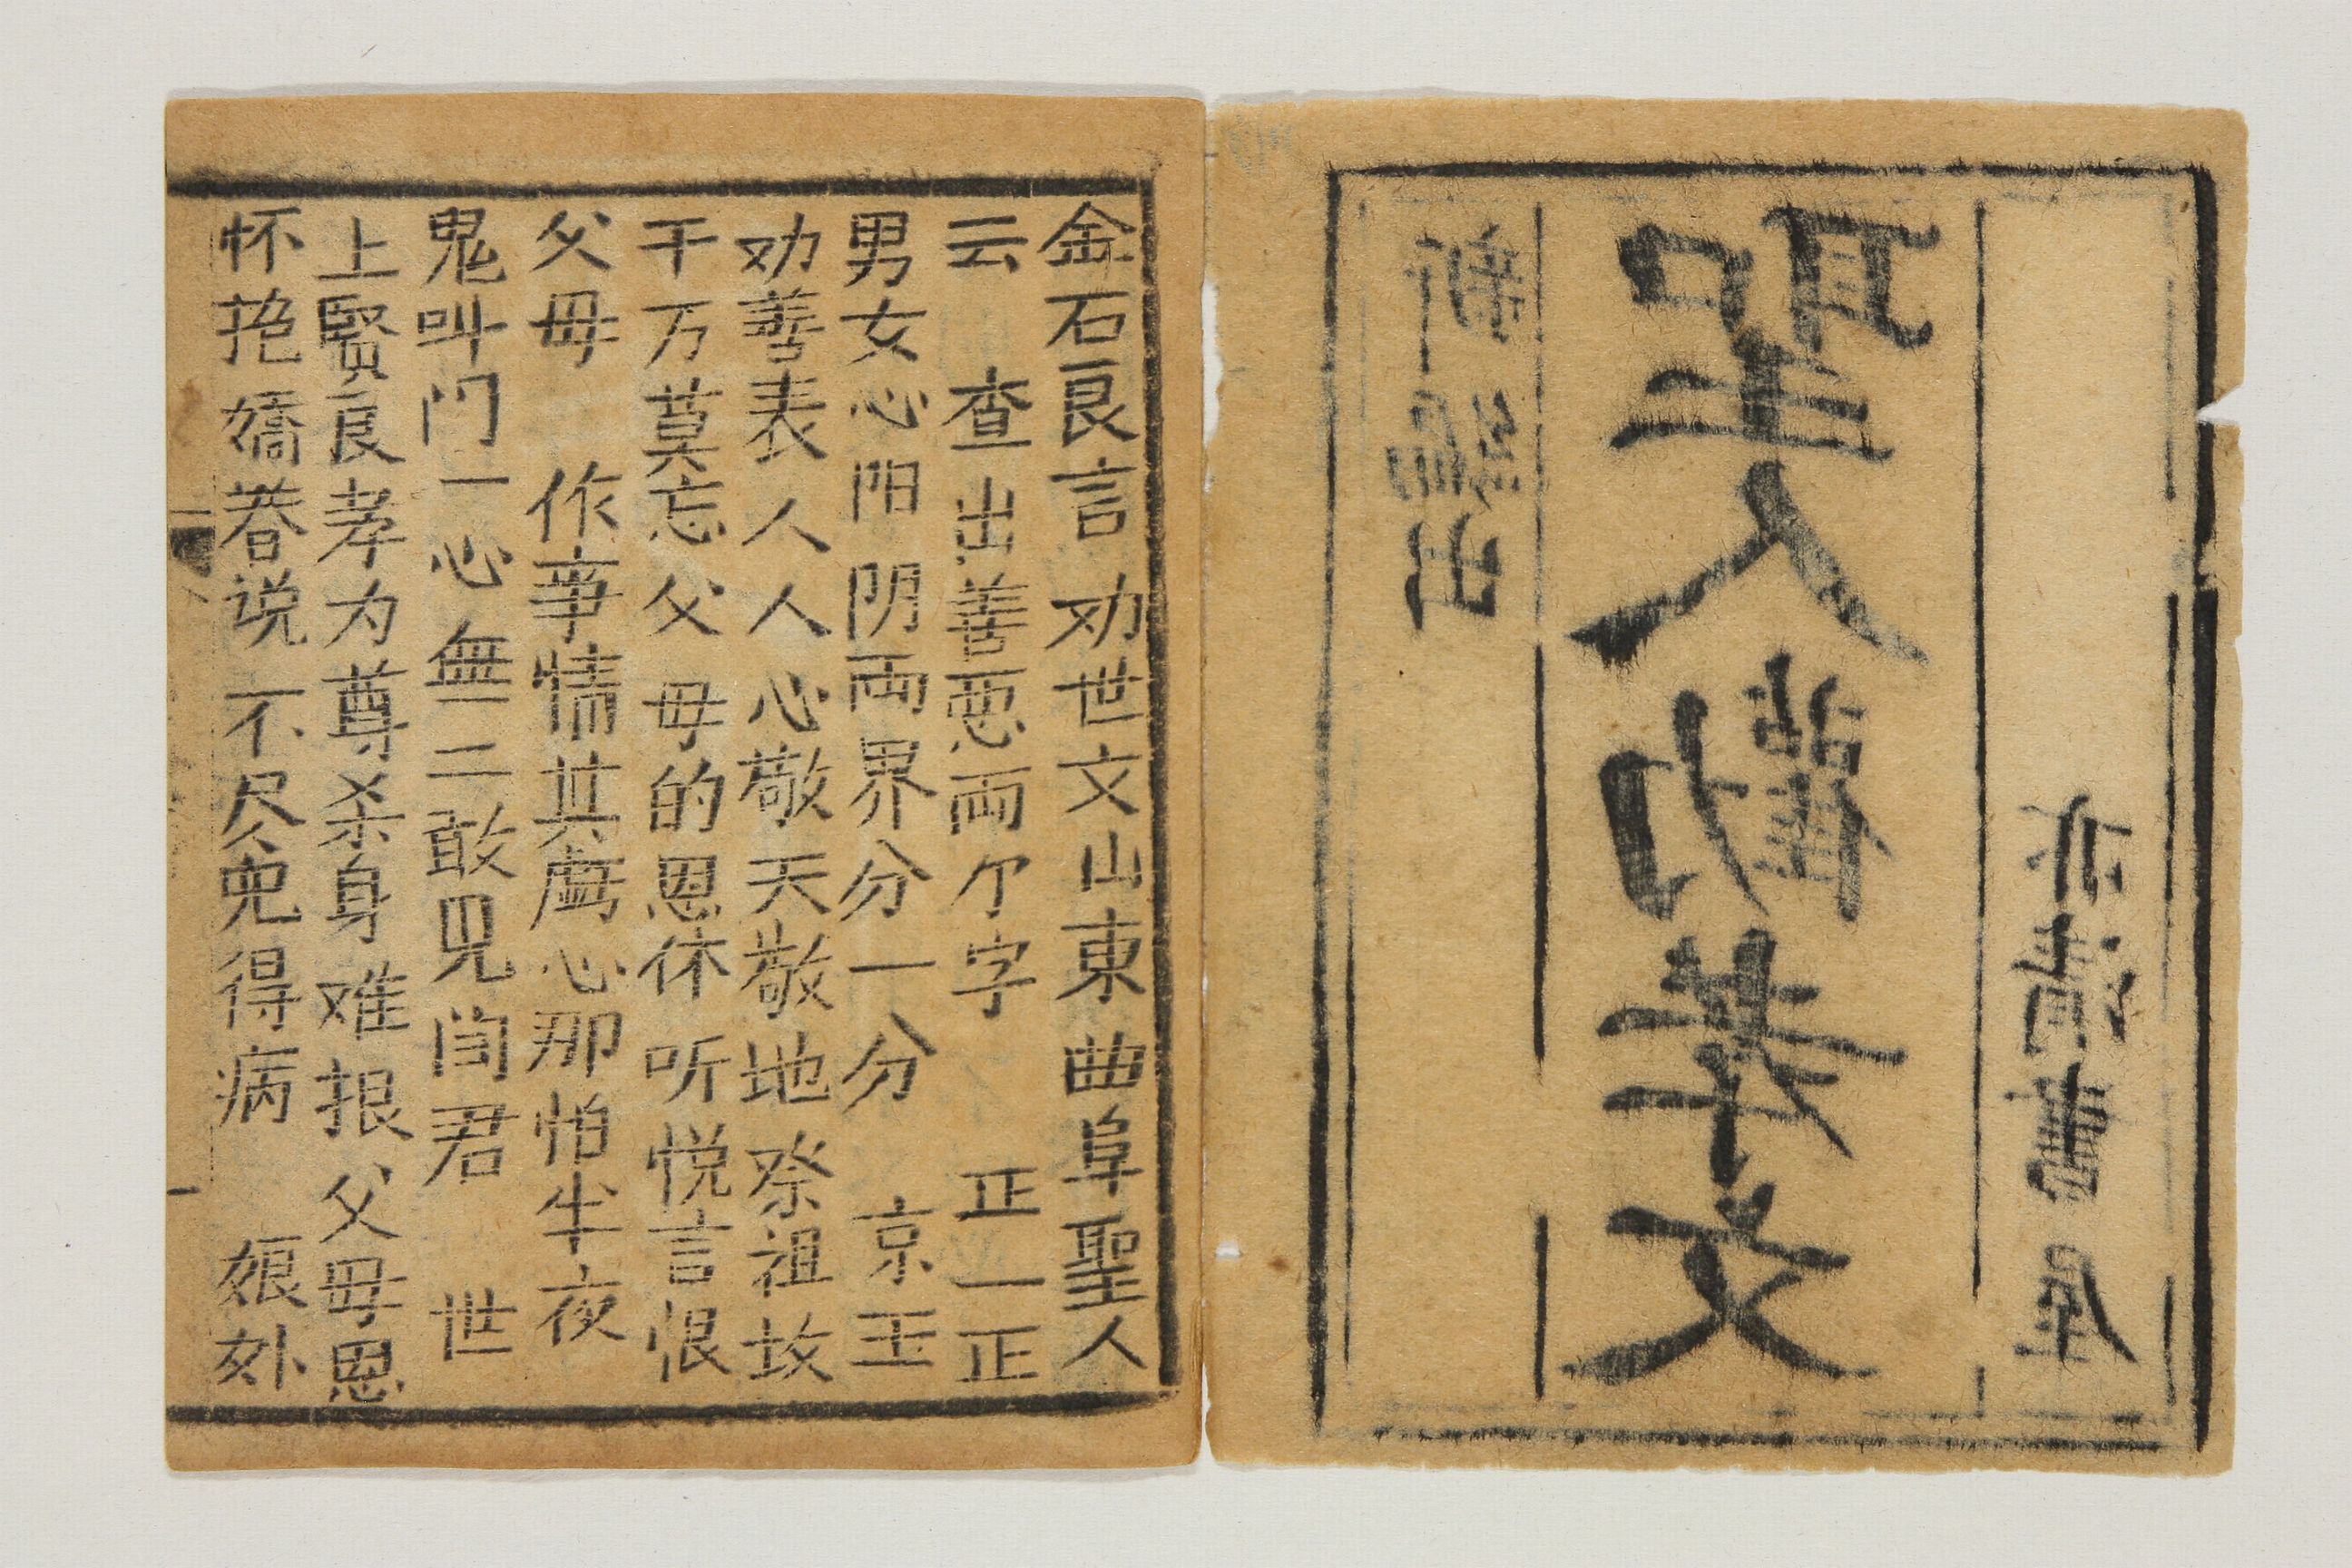 新編出
聖人勸孝文
清書屋
金石良言劝世文山東曲阜聖人
云 查出善恶両个字 正一正
男女心阳阴両界分一分 京玉
劝善表人人心敬天敬地祭祖坟
千万莫忘父母的恩休听悦言恨
父母 作事情其虧心那怕半夜
鬼叫门一心無二敢見閆君 世
上賢良孝为尊杀身难报父母恩
怀抱嬌养说不尽免得病 娘外